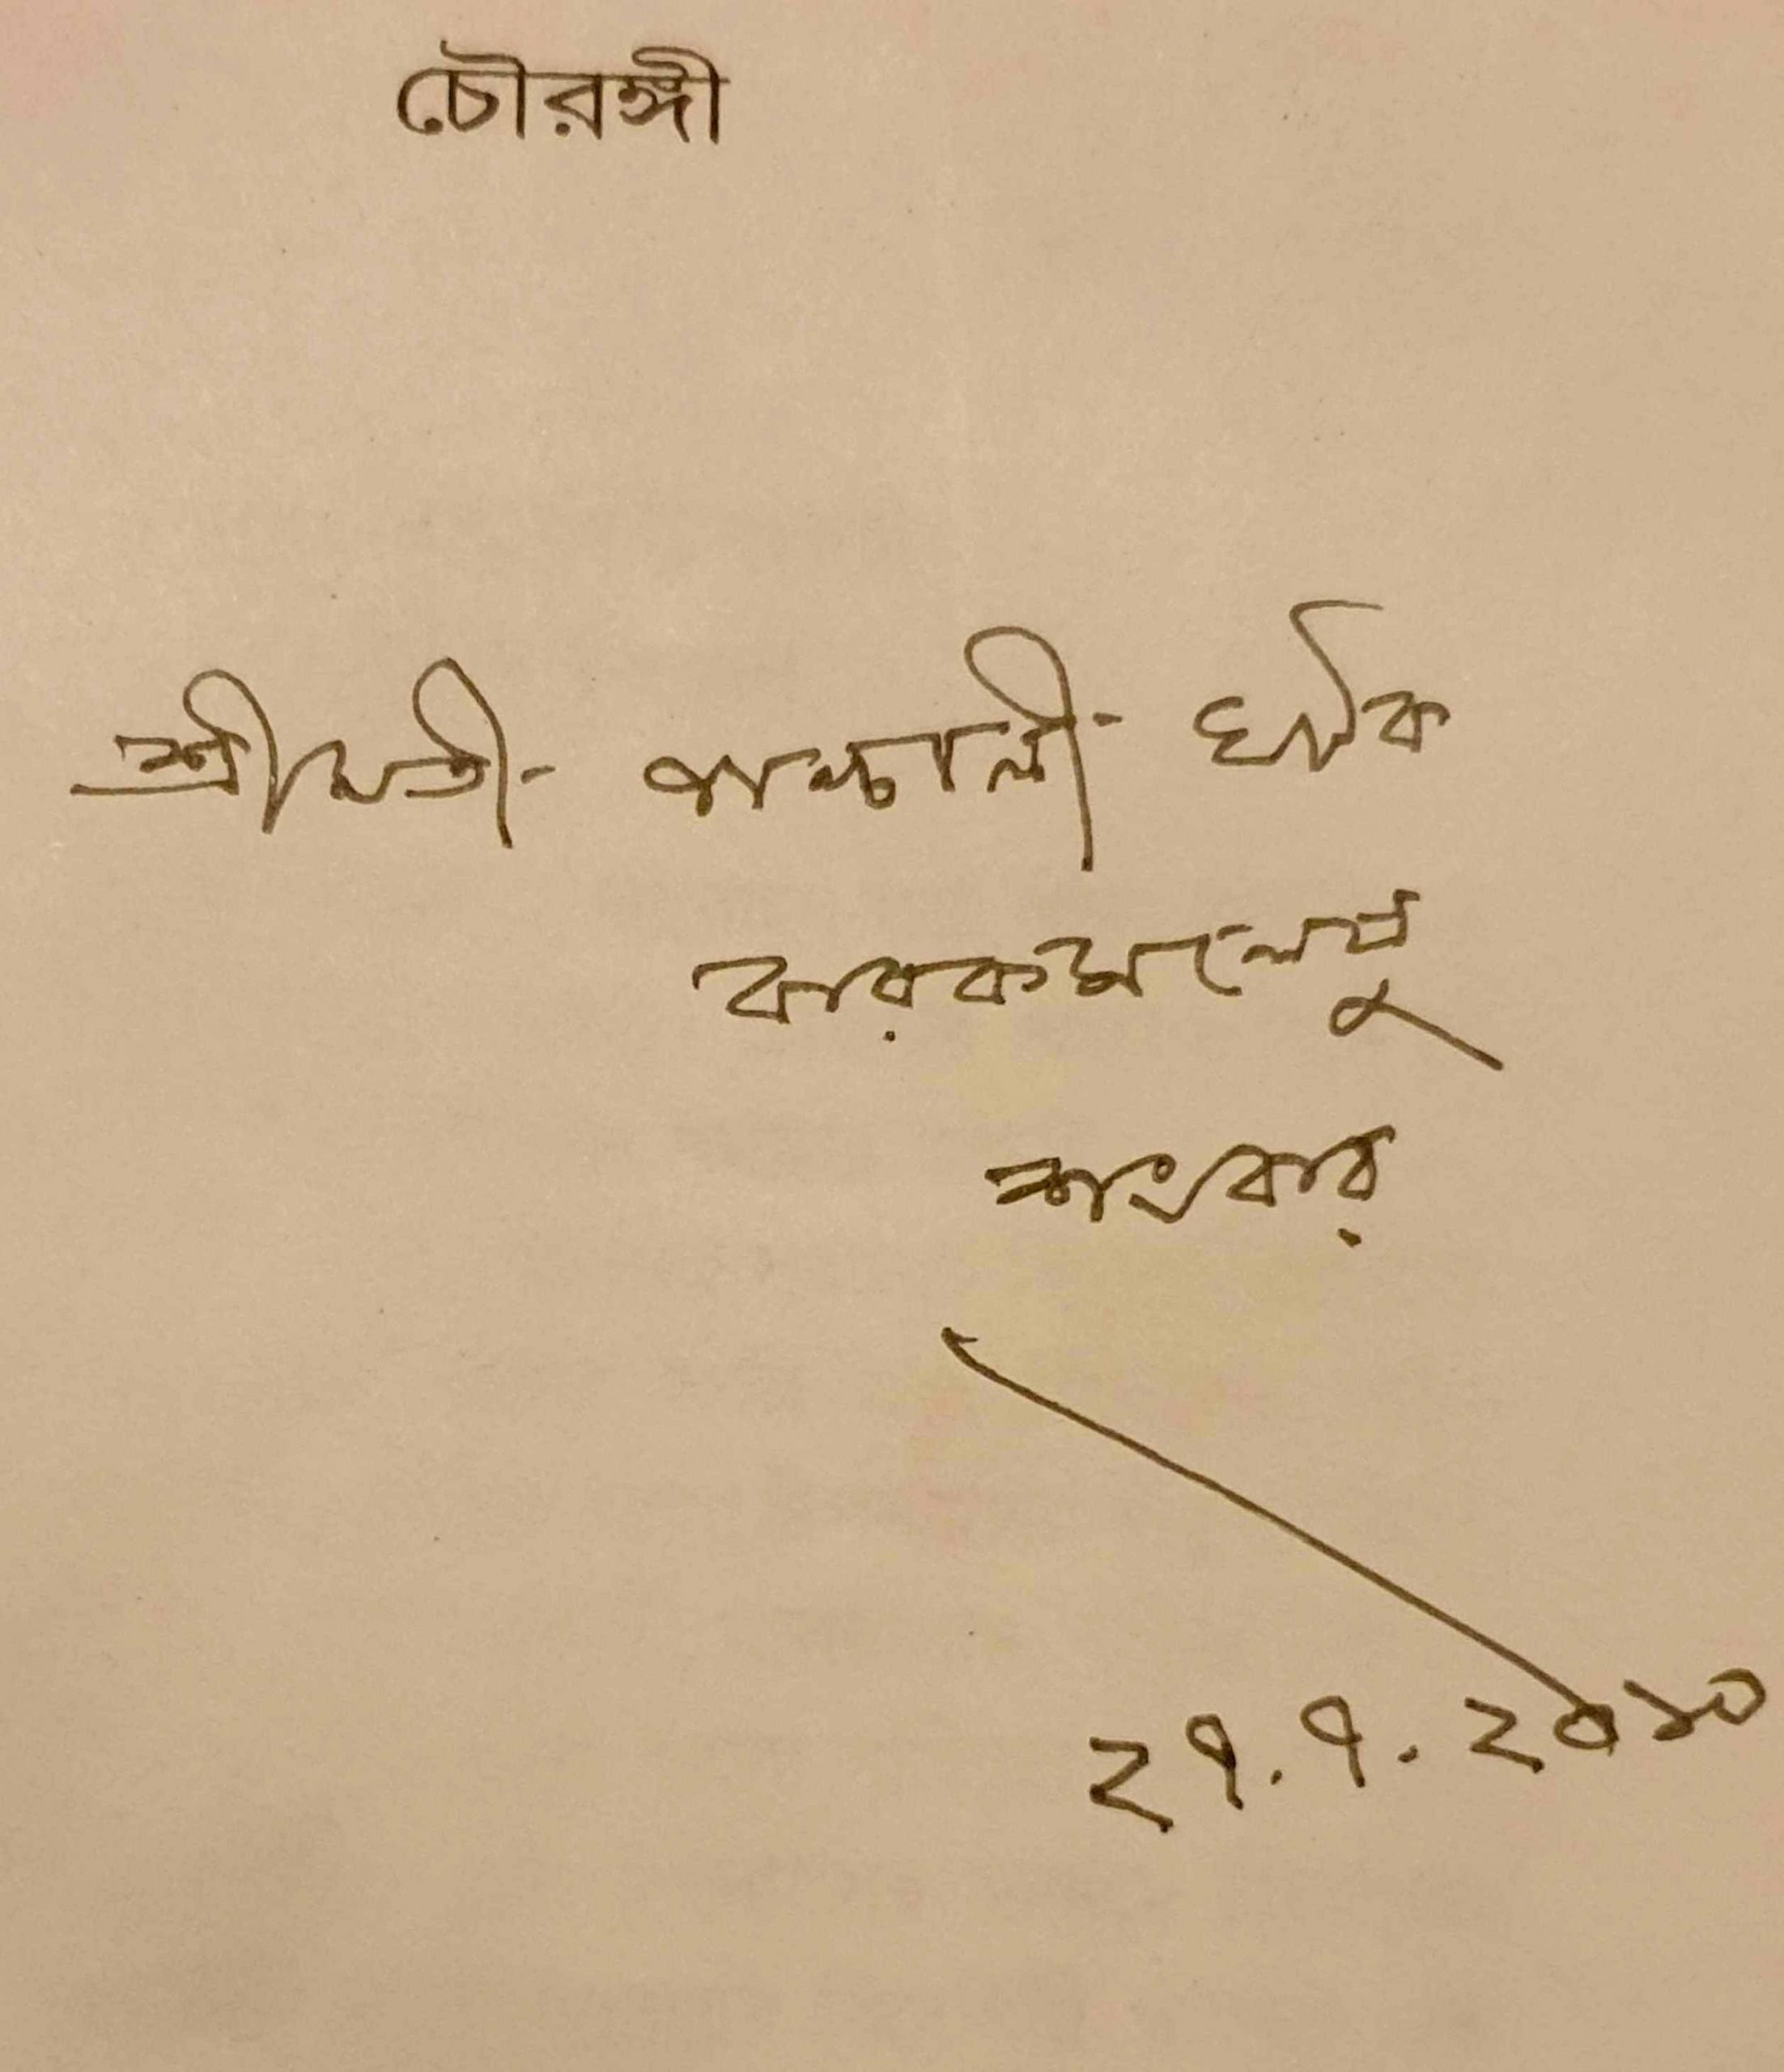 চৌরঙ্গী
শ্রীমতী পাঞ্চালী
করকমলেষু
শংকর
২৭.৭.২০১০